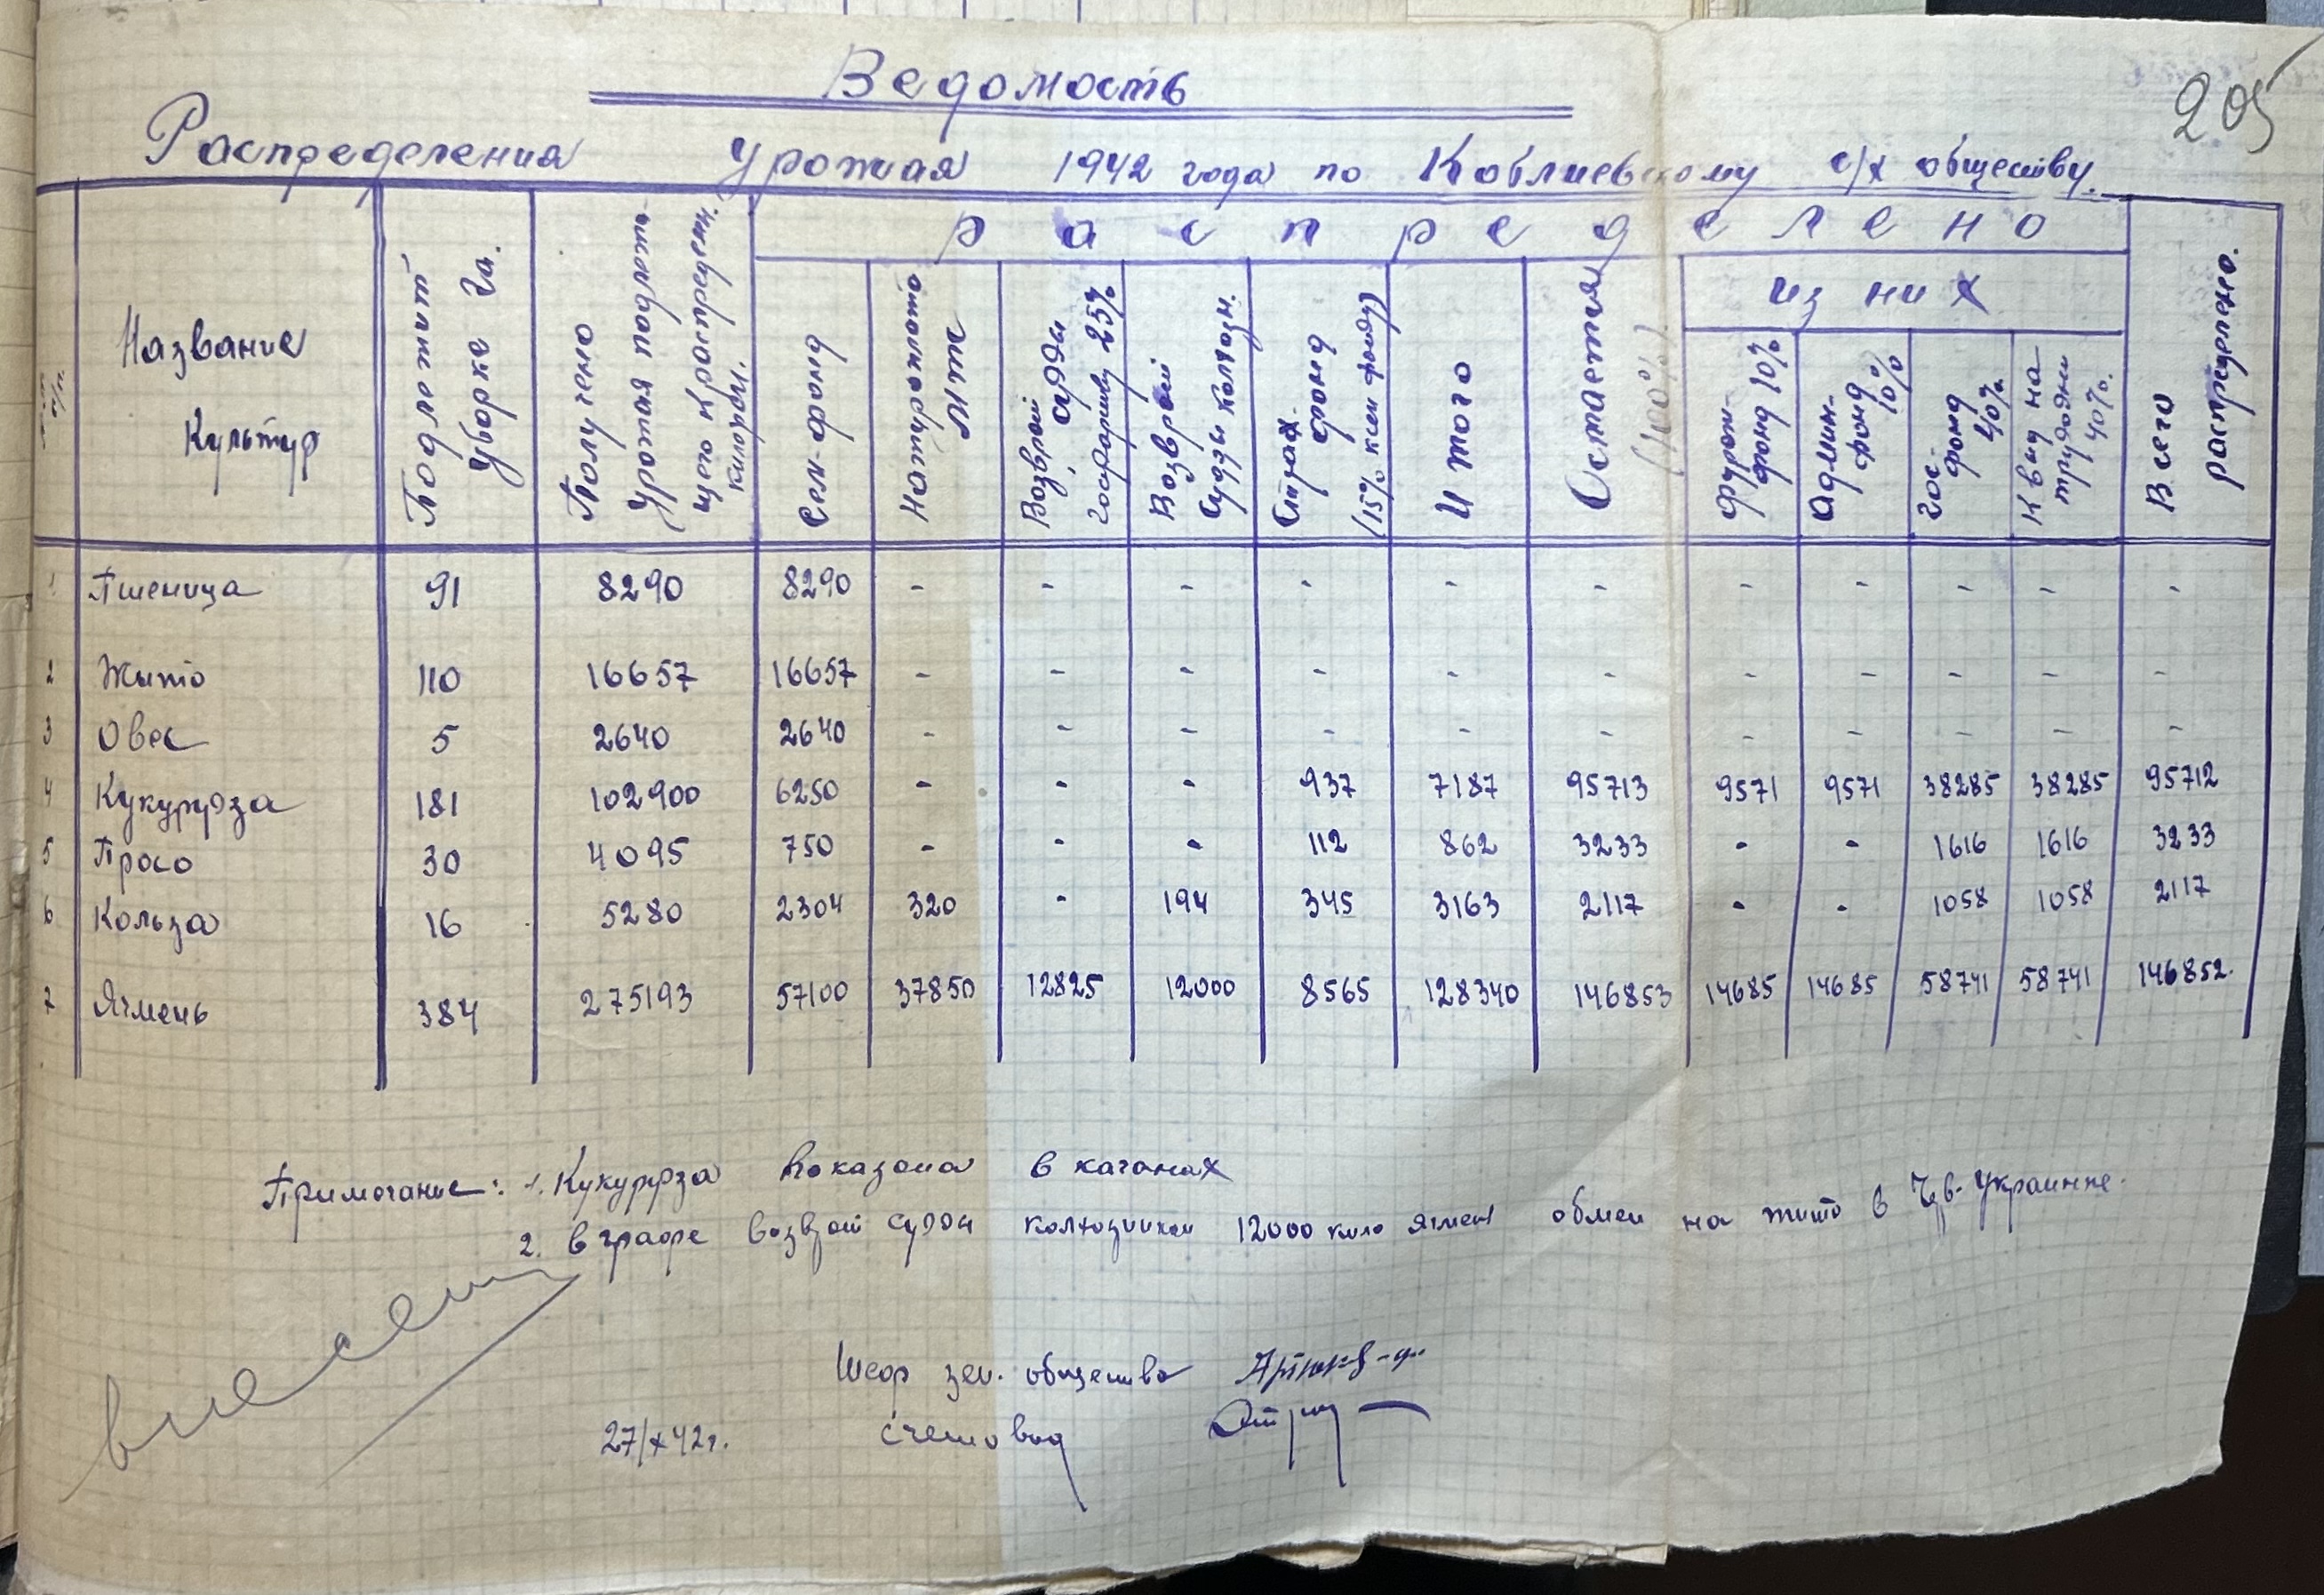 205
Ведомость
Распределения урожая 1942 года по Коблиевскому с/х обществу.
Название Культур
Подлежит уборке Га.
Получено урожая подлежащего к распределен. килограм.
распределено
Сем-фонд
Натуроплата МТС
Возврат ссуды госудрству 25%
Возврат ссуды колхозн.
Страх. фонд (15% к сем фонду)
Итого
Остается (100%)
из них
Фураж-фонд 10%
Админ-фонд 10%
Гос-фонд 40%
К выд на трудодни 40%.
Всего распределено.
1 Пшеница 91 8290 8290 - - - - - - - - - - -
2 Жыто 110 16657 16657 - - - - - - - - - - -
3 Овес 5 2640 2640 - - - - - - - - - - -
4 Кукурудза 181 102900 6250 - - - 937 7187 95713 9571 9571 38285 38285 95712
5 Просо 30 4095 750 - - - 112 862 3233 - - 1616 1616 3233
6 Кользա 16 5280 2304 320 - 194 345 3163 2117 - - 1058 1058 2117
7 Ячмень 384 275193 57100 37850 12825 12000 8565 128340 146853 14685 14685 58741 58741 146852.
Примечание: 1. Кукурудза показана в качанах
2. В графе возврат ссуды колхозникам 12000 кило ячмен обмен на жито в Цв. Украинке.
внесен
Шеф зем. общества
27/X 42г. Счетовод